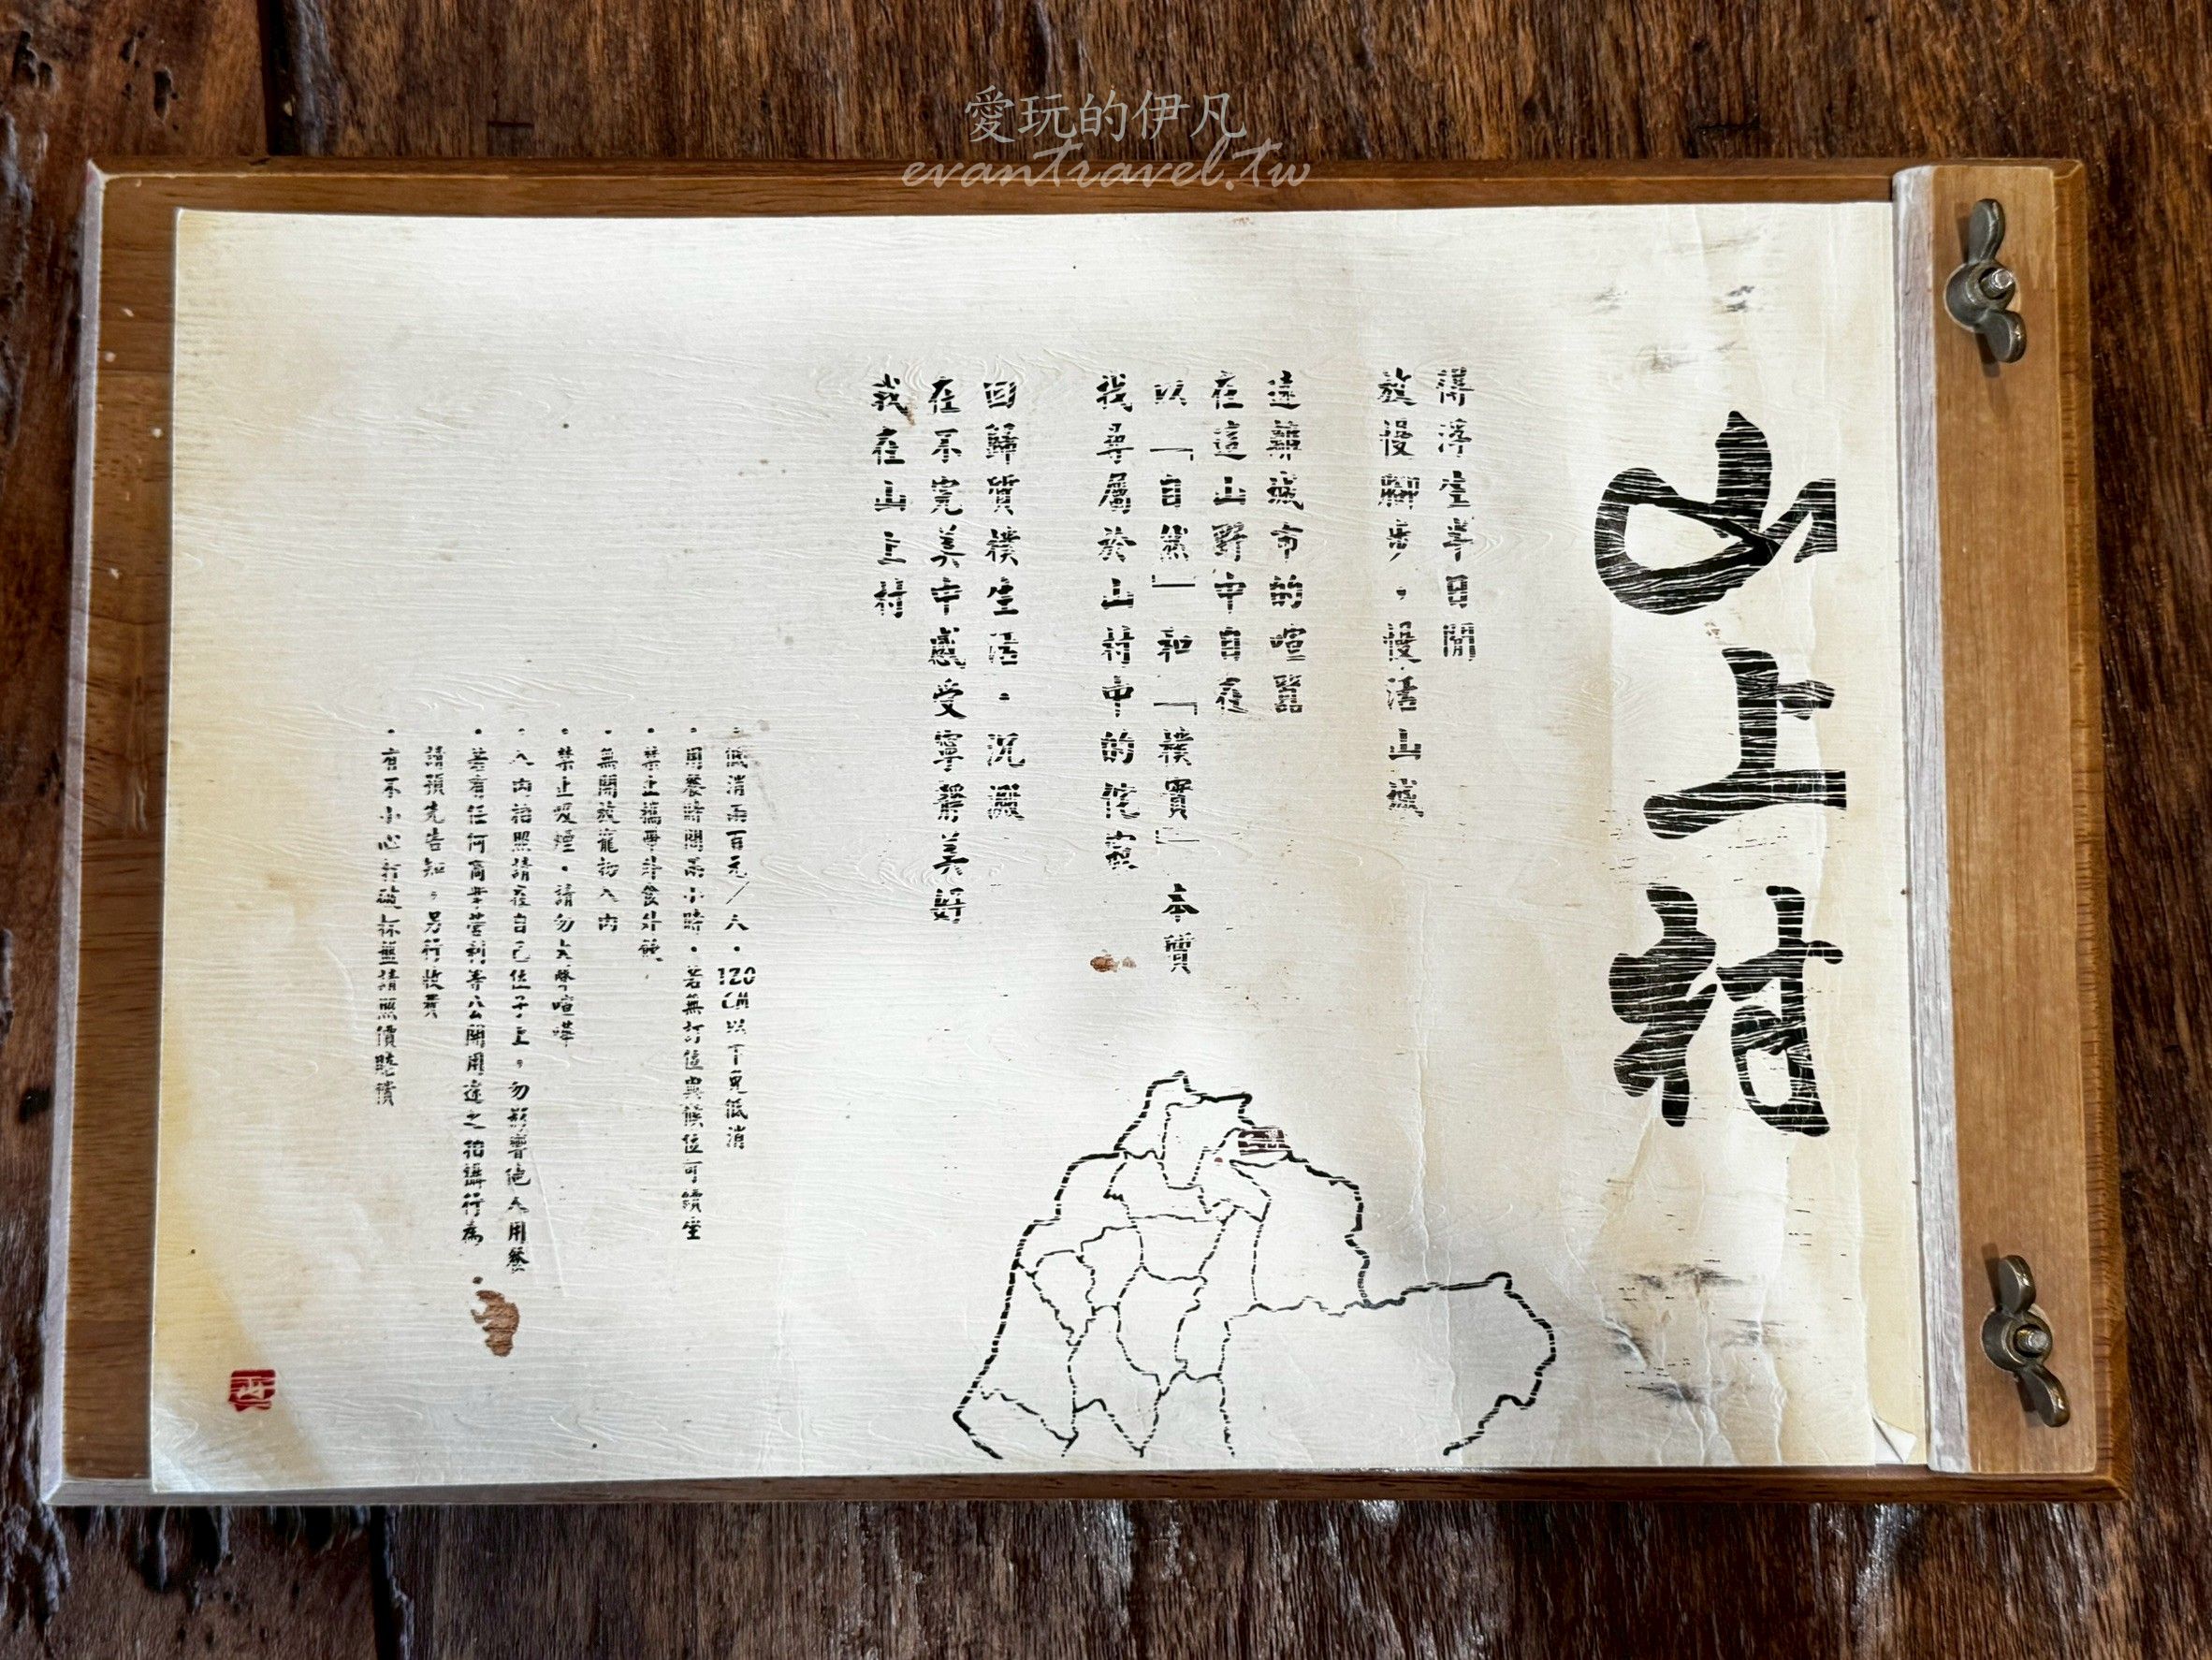 愛玩的伊凡
evantravel.tw
山上村
得浮生半日閒
放慢腳步，慢活山城
遠離城市的喧囂
在這山野中自在
以「自然」和「樸實」本質
找尋屬於山村中的侘寂
回歸質樸生活，沉澱
在不完美中感受寧靜美好
我在山上村
・低消兩百元／人，120CM以下免低消
・用餐時間兩小時，若無訂位與候位可續坐
・禁止攜帶外食外飲，
・無開放寵物入內
・禁止吸煙，請勿大聲喧嘩
・入內拍照請在自己位子上，勿影響他人用餐
・若有任何商業營利等公開用途之拍攝行為，
請預先告知，另行收費
・有不小心打破杯盤請照價賠償
山